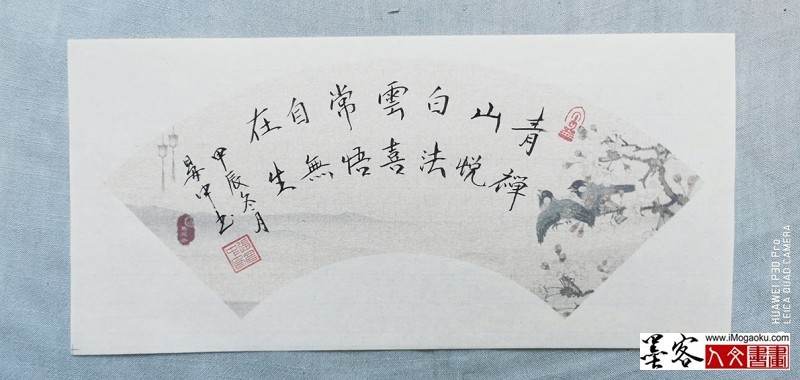 青山白雲常自在
禪悦法喜悟無生
甲辰冬月
书
HUAWEI P30 Pro
LEICA QUAD CAMERA
www.iMogaoku.com
墨客人文書畫